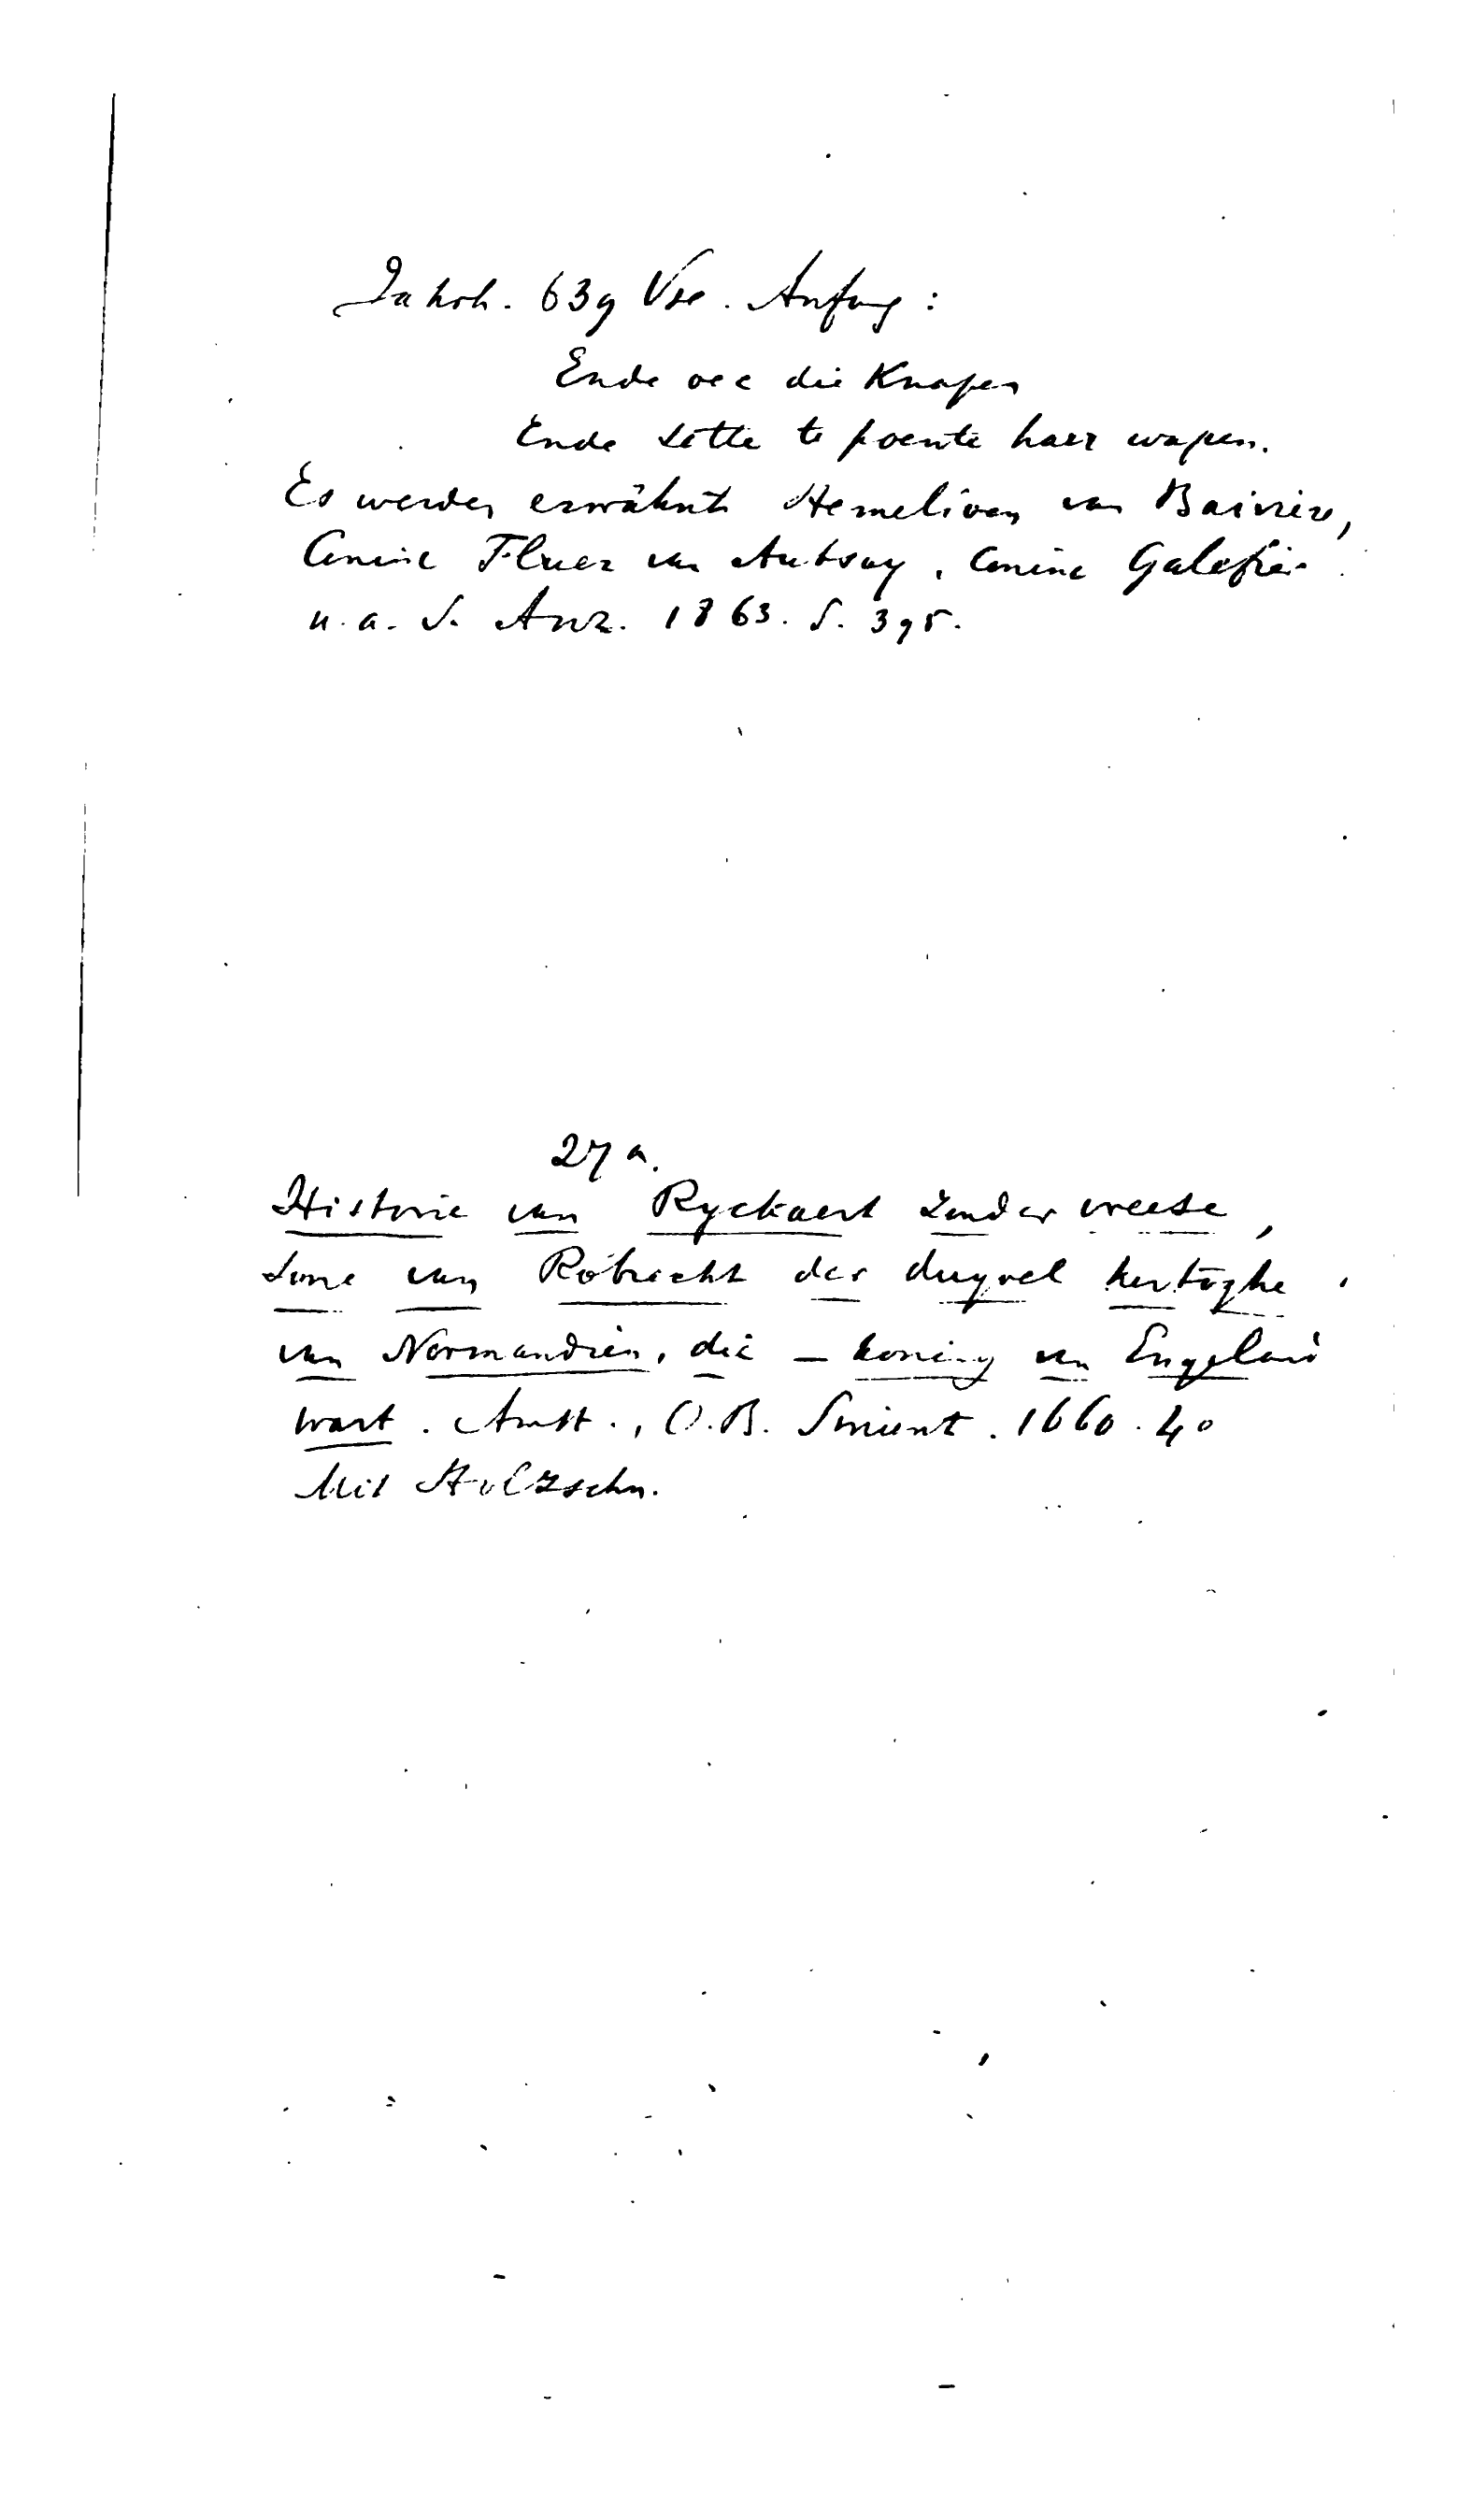 639 Vse. Anfang:
Ende oec die Knapen
Ende sette te poente haer wapen.
Es werden erwähnt Hemelioen van Baivire,
Coninc Fluer van Autvay, Coninc Galefier
u. a. S. Anz. 1863. S. 395.
27a.
Historie van Ryckaert zonder vreese,
Sone van Robrecht der duyvel hertoghe
van Normandien, die – koning van Engeland
wart. Amst., O. B. Smient. 1660. 4o
Mit Holzschn.